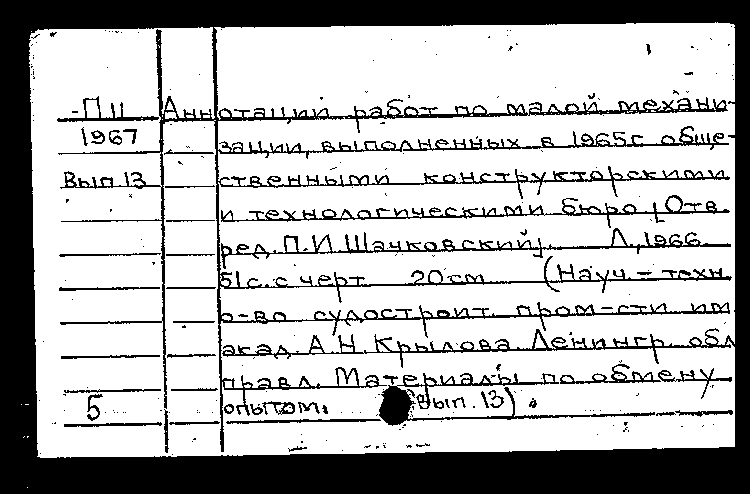 -П 11 Аннотаций работ по малой механи-
1967 зации, выполненных в 1965г обще-
Вып.13 ственными конструкторскими
и технологическими бюро [Отв.
ред. П.И.Шачковский]. Л., 1966.
51с. с черт. 20см (Науч.-техн.
о-во судостроит. пром-сти им.
акад. А.Н.Крылова Ленингр. обл.
правл. Материалы по обмену
5 опытом. Вып. 13).